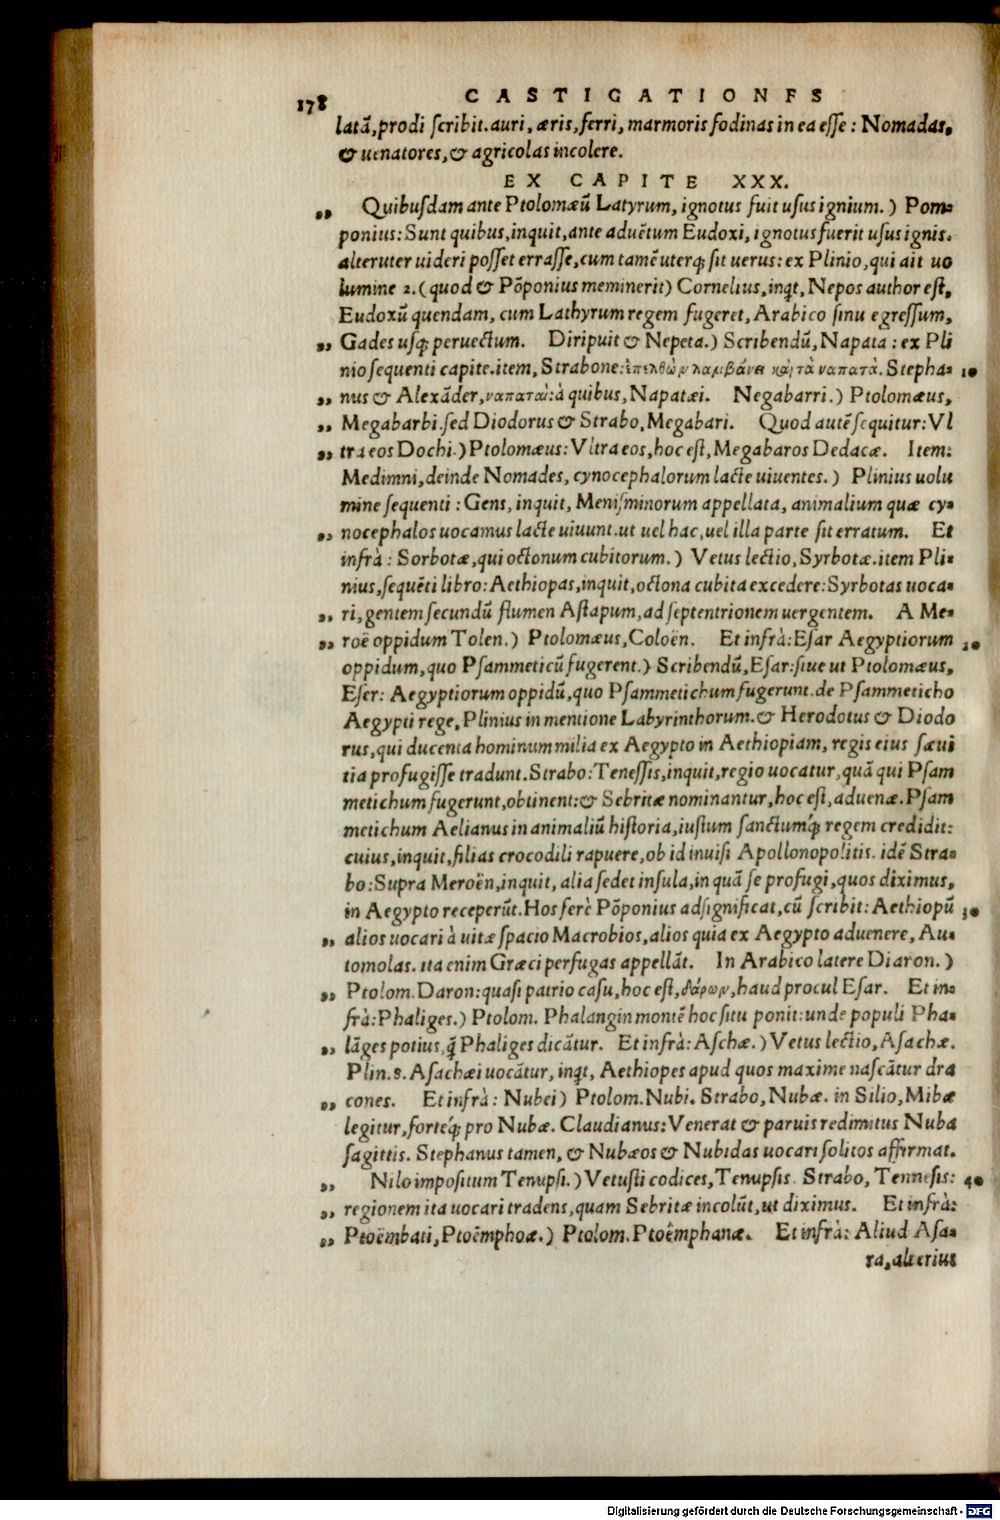 178 CASTIGATIONES
latã, prodi ſcribit. auri, æris, ferri, marmoris fodinas in ea eſſe: Nomadas,
& uenatores, & agricolas incolere.
EX CAPITE XXX.
„ Quibuſdam ante Ptolomæũ Latyrum, ignotus fuit uſus ignium.) Pom-
ponius: Sunt quibus, inquit, ante aduẽtum Eudoxi, ignotus fuerit uſus ignis.
alteruter uideri poſſet erraſſe, cum tamẽ uterq; ſit uerus: ex Plinio, qui ait uo
lumine 2. (quod & Põponius meminerit) Cornelius, inqt, Nepos author eſt,
Eudoxũ quendam, cum Lathyrum regem fugeret, Arabico ſinu egreſſum,
„ Gades uſq; peruectum. Diripuit & Nepeta.) Scribendũ, Napata: ex Pli
nio ſequenti capite. item, Strabone: ἐπελθὼν λαμβάνει καὶ τὰ ναπατὰ. Stepha- 10
„ nus & Alexãder, ναπαταὶ: à quibus, Napatæi. Negabarri.) Ptolomæus,
„ Megabarbi. ſed Diodorus & Strabo, Megabari. Quod autẽ ſequitur: Vl
„ tra eos Dochi.) Ptolomæus: Vltra eos, hoc eſt, Megabaros Dedacæ. Item:
Medimni, deinde Nomades, cynocephalorum lacte uiuentes.) Plinius uolu
mine ſequenti: Gens, inquit, Meniſminorum appellata, animalium quæ cy-
„ nocephalos uocamus lacte uiuunt. ut uel hac, uel illa parte ſit erratum. Et
infrà: Sorbotæ, qui octonum cubitorum.) Vetus lectio, Syrbotæ. item Pli-
nius, ſequẽti libro: Aethiopas, inquit, octona cubita excedere: Syrbotas uoca-
„ ri, gentem ſecundũ flumen Aſtapum, ad ſeptentrionem uergentem. A Me-
„ roë oppidum Tolen.) Ptolomæus, Coloën. Et infrà: Eſar Aegyptiorum 20
oppidum, quo Pſammeticũ fugerent.) Scribendũ, Eſar: ſiue ut Ptolomæus,
Eſer: Aegyptiorum oppidũ, quo Pſammetichum fugerunt. de Pſammeticho
Aegypti rege, Plinius in mentione Labyrinthorum. & Herodotus & Diodo
rus, qui ducenta hominum milia ex Aegypto in Aethiopiam, regis eius ſæui
tia profugiſſe tradunt. Strabo: Teneſſis, inquit, regio uocatur, quã qui Pſam
metichum fugerunt, obtinent: & Sebritæ nominantur, hoc eſt, aduenæ. Pſam
metichum Aelianus in animaliũ hiſtoria, iuſtum ſanctumq́; regem credidit:
cuius, inquit, filias crocodili rapuere, ob id inuiſi Apollonopolitis. idẽ Stra-
bo: Supra Meroën, inquit, alia ſedet inſula, in quã ſe profugi, quos diximus,
in Aegypto receperũt. Hos ferè Põponius adſignificat, cũ ſcribit: Aethiopũ 30
„ alios uocari à uitæ ſpacio Macrobios, alios quia ex Aegypto aduenere, Au-
tomolas. ita enim Græci perfugas appellãt. In Arabico latere Diaron.)
„ Ptolom. Daron: quaſi patrio caſu, hoc eſt, δάρων, haud procul Eſar. Et in-
frà: Phaliges.) Ptolom. Phalangin montẽ hoc ſitu ponit: unde populi Pha-
„ lãges potius, q̃ Phaliges dicãtur. Et infrà: Aſchæ.) Vetus lectio, Aſachæ.
Plin. 8. Aſachæi uocãtur, inqt, Aethiopes apud quos maxime naſcãtur dra
„ cones. Et infrà: Nubei) Ptolom. Nubi. Strabo, Nubæ. in Silio, Mibæ
legitur, forteq́; pro Nubæ. Claudianus: Venerat & paruis redimitus Nuba
ſagittis. Stephanus tamen, & Nubæos & Nubidas uocari ſolitos affirmat.
„ Nilo impoſitum Tenupſi.) Vetuſti codices, Tenupſis. Strabo, Tenneſis: 40
„ regionem ita uocari tradens, quam Sebritæ incolũt, ut diximus. Et infrà:
„ Ptoëmbati, Ptoẽmphoæ.) Ptolom. Ptoẽmphanæ. Et infrà: Aliud Aſa-
ra, alterius
Digitalisierung gefördert durch die Deutsche Forschungsgemeinschaft - DFG